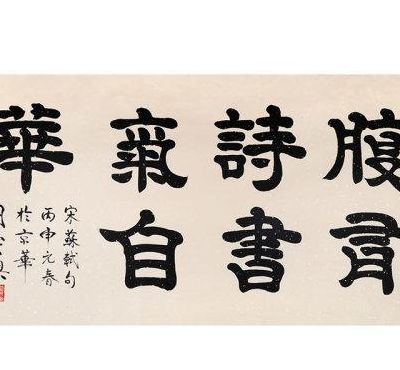 腹有
詩書
氣自
華
宋蘇軾句
丙申元春
於京華